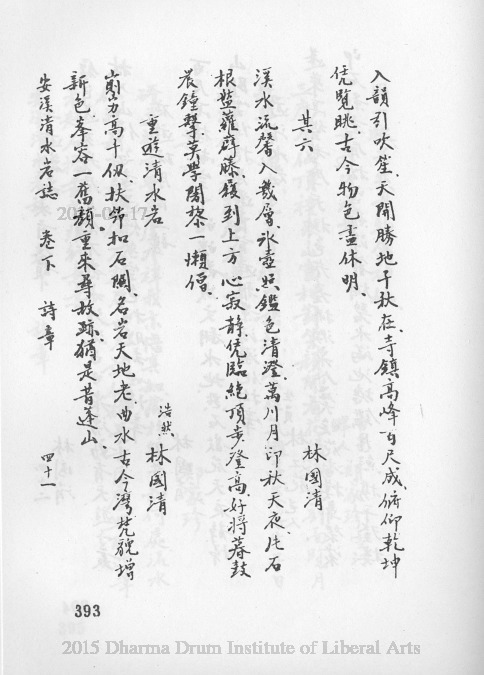 入韻引吹笙、天開勝地千秋在、寺鎮高峰百尺成、俯仰乾坤
凭覽眺、古今物色盡休明、
其六 林國清
溪水流馨入幾層、氷壺照鑑色清澄、萬川月印秋天夜、片石
根盤蘿薜藤、錢到上方心寂靜、凭臨絶頂步澄高、好將暮鼓
晨鐘擊、莫學闍黎一懶僧、
重遊清水岩 浩然 林國清
剪刀高千仭、扶筇扣石關、名岩天地老、曲水古今灣、梵貌增
新色、峯容一舊顏、重來尋故跡、猶是昔蓬山、
安溪清水岩誌 卷下 詩章 四十一
393
2015 Dharma Drum Institute of Liberal Arts